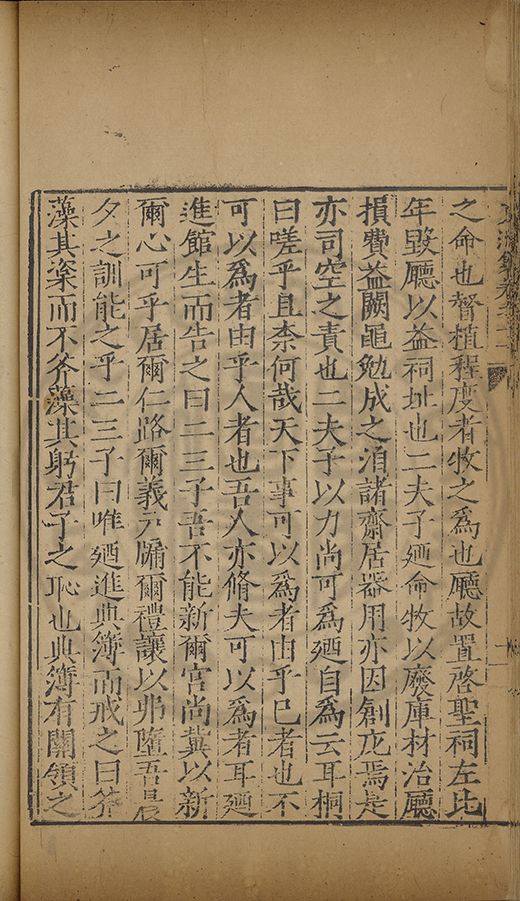 之命也督植程度者牧之爲也廳故置啓聖祠左比
年毀廳以益祠址也二夫子廼命牧以廢庫材治廳
損費益闕黽勉成之洎諸齋居器用亦因創庀焉是
亦司空之責也二夫子以力尚可爲廼自爲云耳桐
曰嗟乎且柰何哉天下事可以爲者由乎已者也不
可以爲者由乎人者也吾人亦脩夫可以爲者耳廼
進館生而告之曰二三子吾不能新爾宮尚冀以新
爾心可乎居爾仁路爾義戸牖爾禮讓以弗墮吾晨
夕之訓能之乎二三子曰唯廼進典簿而戒之曰斧
藻其楶而不斧藻其躬君子之恥也典簿有關領之